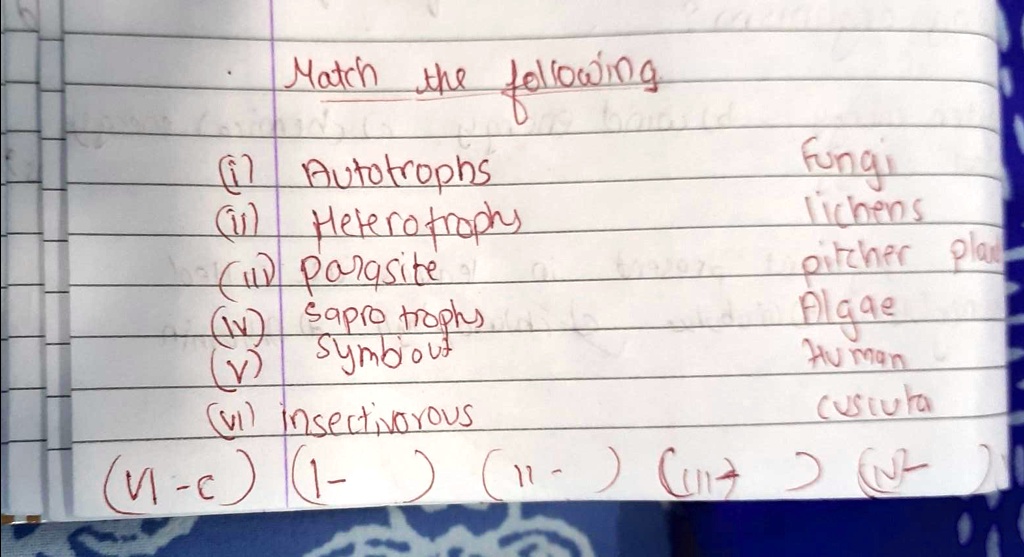 Match the following
(i) Autotrophs Fungi
(ii) Heterotrophs lichens
(iii) parasite pitcher plan
(iv) Sapro trophs Algae
(v) Symbiout Human
(vi) insectivorous cuscuta
(VI-c) (I- ) (II- ) (III- ) (IV- )